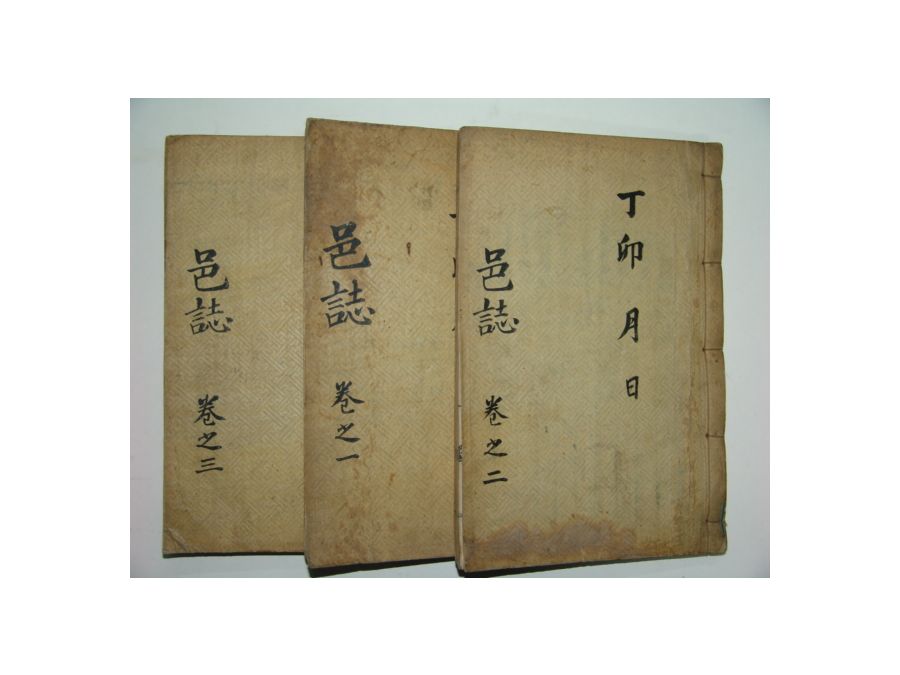 丁卯月日
邑誌 卷之二
邑誌 卷之一
邑誌 卷之三